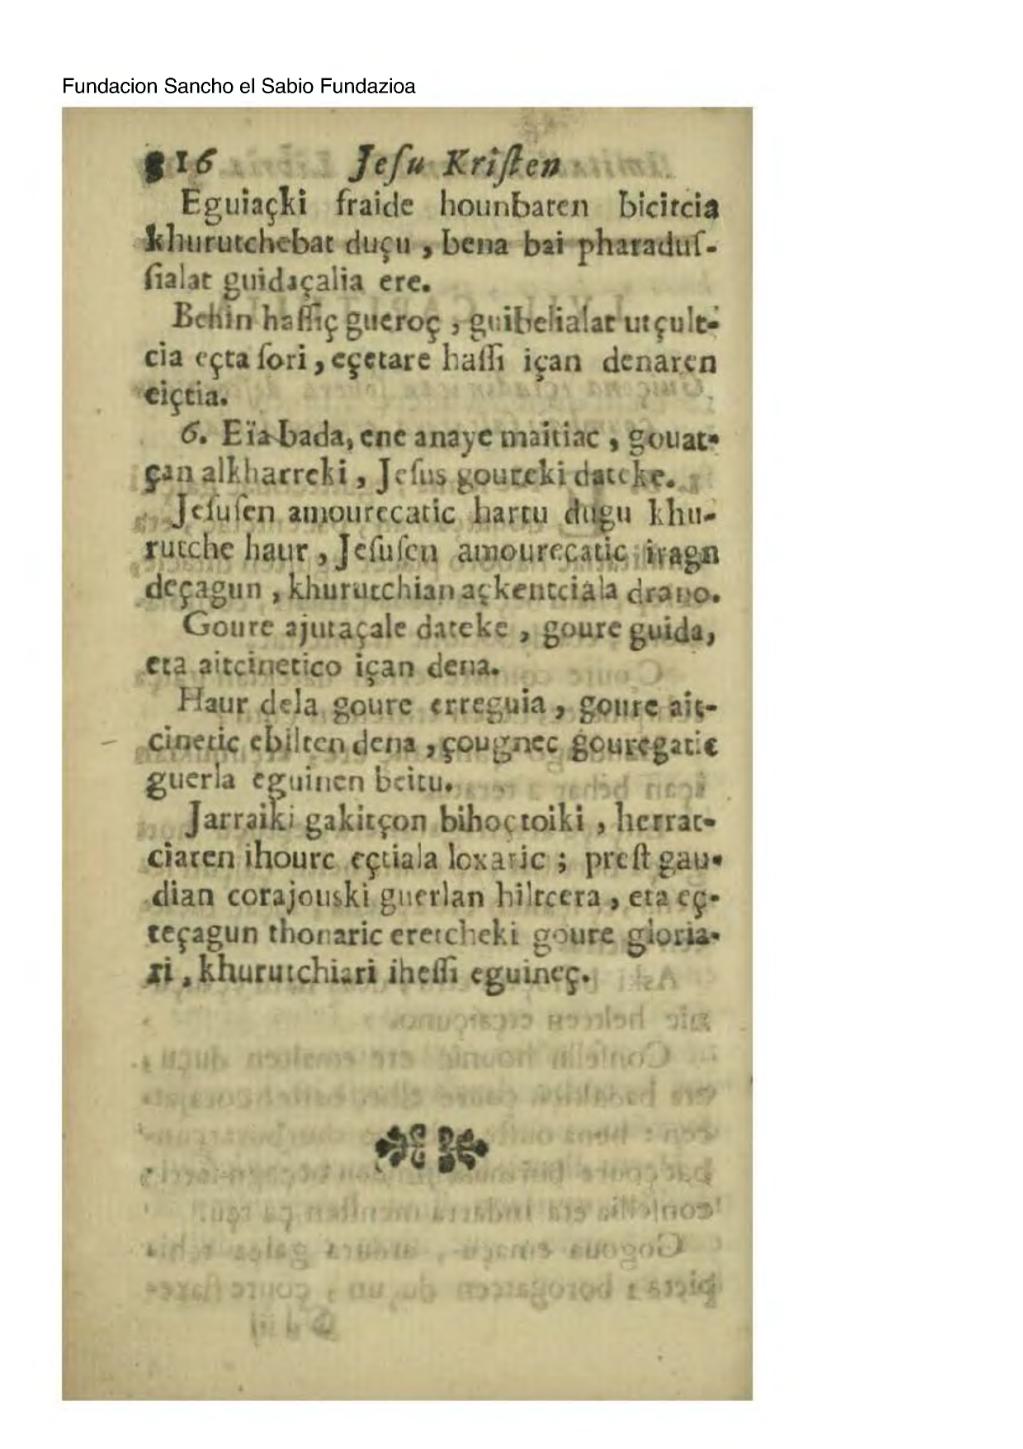 Fundacion Sancho el Sabio Fundazioa
316 Jeſu Kriſten
Eguiaçki fraide hounbaten bicitcia
khurutchebat duçu, bena bai pharaduſ-
ſialat guidaçalia ere.
Behin haſſiç gueroç, guibelialat utçult-
cia eçta ſori, eçetare haſſi içan denaren
eiçtia.
6. Eïa bada, ene anaye maitiac, gouat-
çan alkharreki, Jeſus goureki dateke.
Jeſuſen amourecatic hartu dugu khu-
rutche haur, Jeſuſen amourecatic iragn
deçagun, khurutchian açkentciala drano.
Goure ajutaçale dateke, goure guida,
eta aitcinetico içan dena.
Haur dela goure erreguia, goure ait-
cinetic ebilten dena, çougnec gouregatic
guerla eguinen beitu.
Jarraiki gakitçon bihoçtoiki, herrat-
ciaren ihourc eçtiala loxaric; preſt gau-
dian corajouski guerlan hiltcera, eta eç-
teçagun thonaric eretcheki goure gloria-
ri, khurutchiari iheſſi eguineç.